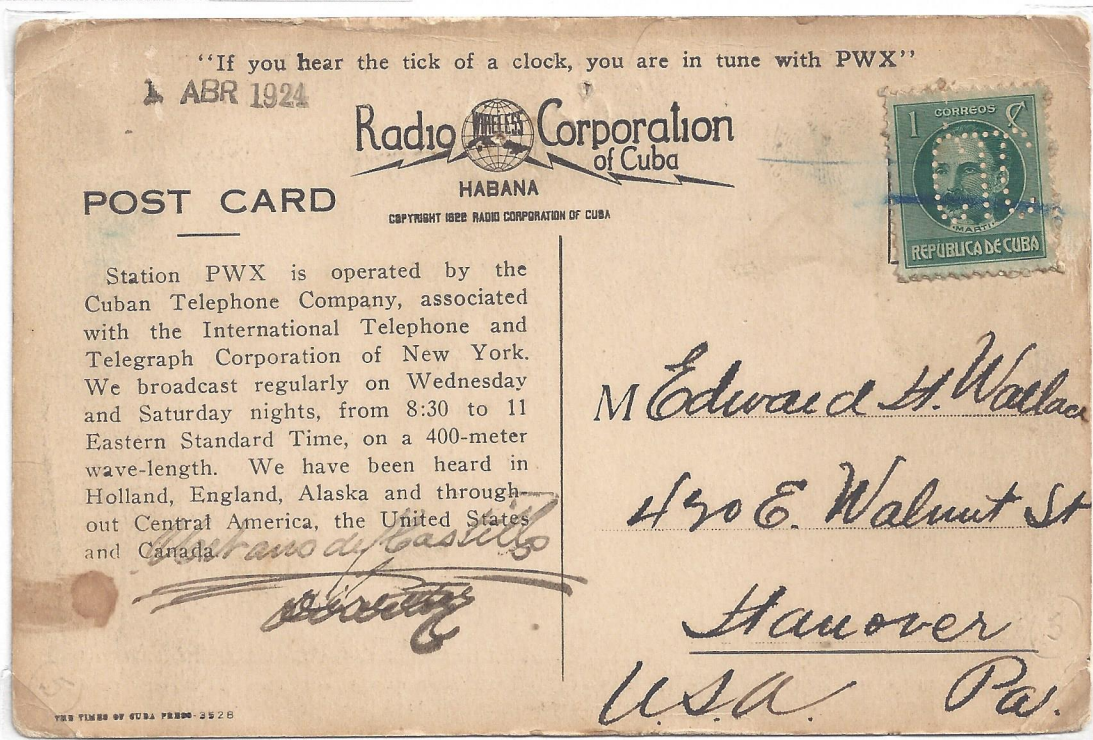 “If you hear the tick of a clock, you are in tune with PWX”
1 ABR 1924
Radio WIRELESS Corporation
of Cuba
HABANA
COPYRIGHT 1922 RADIO CORPORATION OF CUBA
POST CARD
1 CORREOS ¢
MARTI
REPUBLICA DE CUBA
Station PWX is operated by the
Cuban Telephone Company, associated
with the International Telephone and
Telegraph Corporation of New York.
We broadcast regularly on Wednesday
and Saturday nights, from 8:30 to 11
Eastern Standard Time, on a 400-meter
wave-length. We have been heard in
Holland, England, Alaska and through-
out Central America, the United States
and Canada
de Castillo
M Edward H. Wallace
430 E. Walnut St
Hanover
U.S.A. Pa.
THE TIMES OF CUBA PRESS-3528